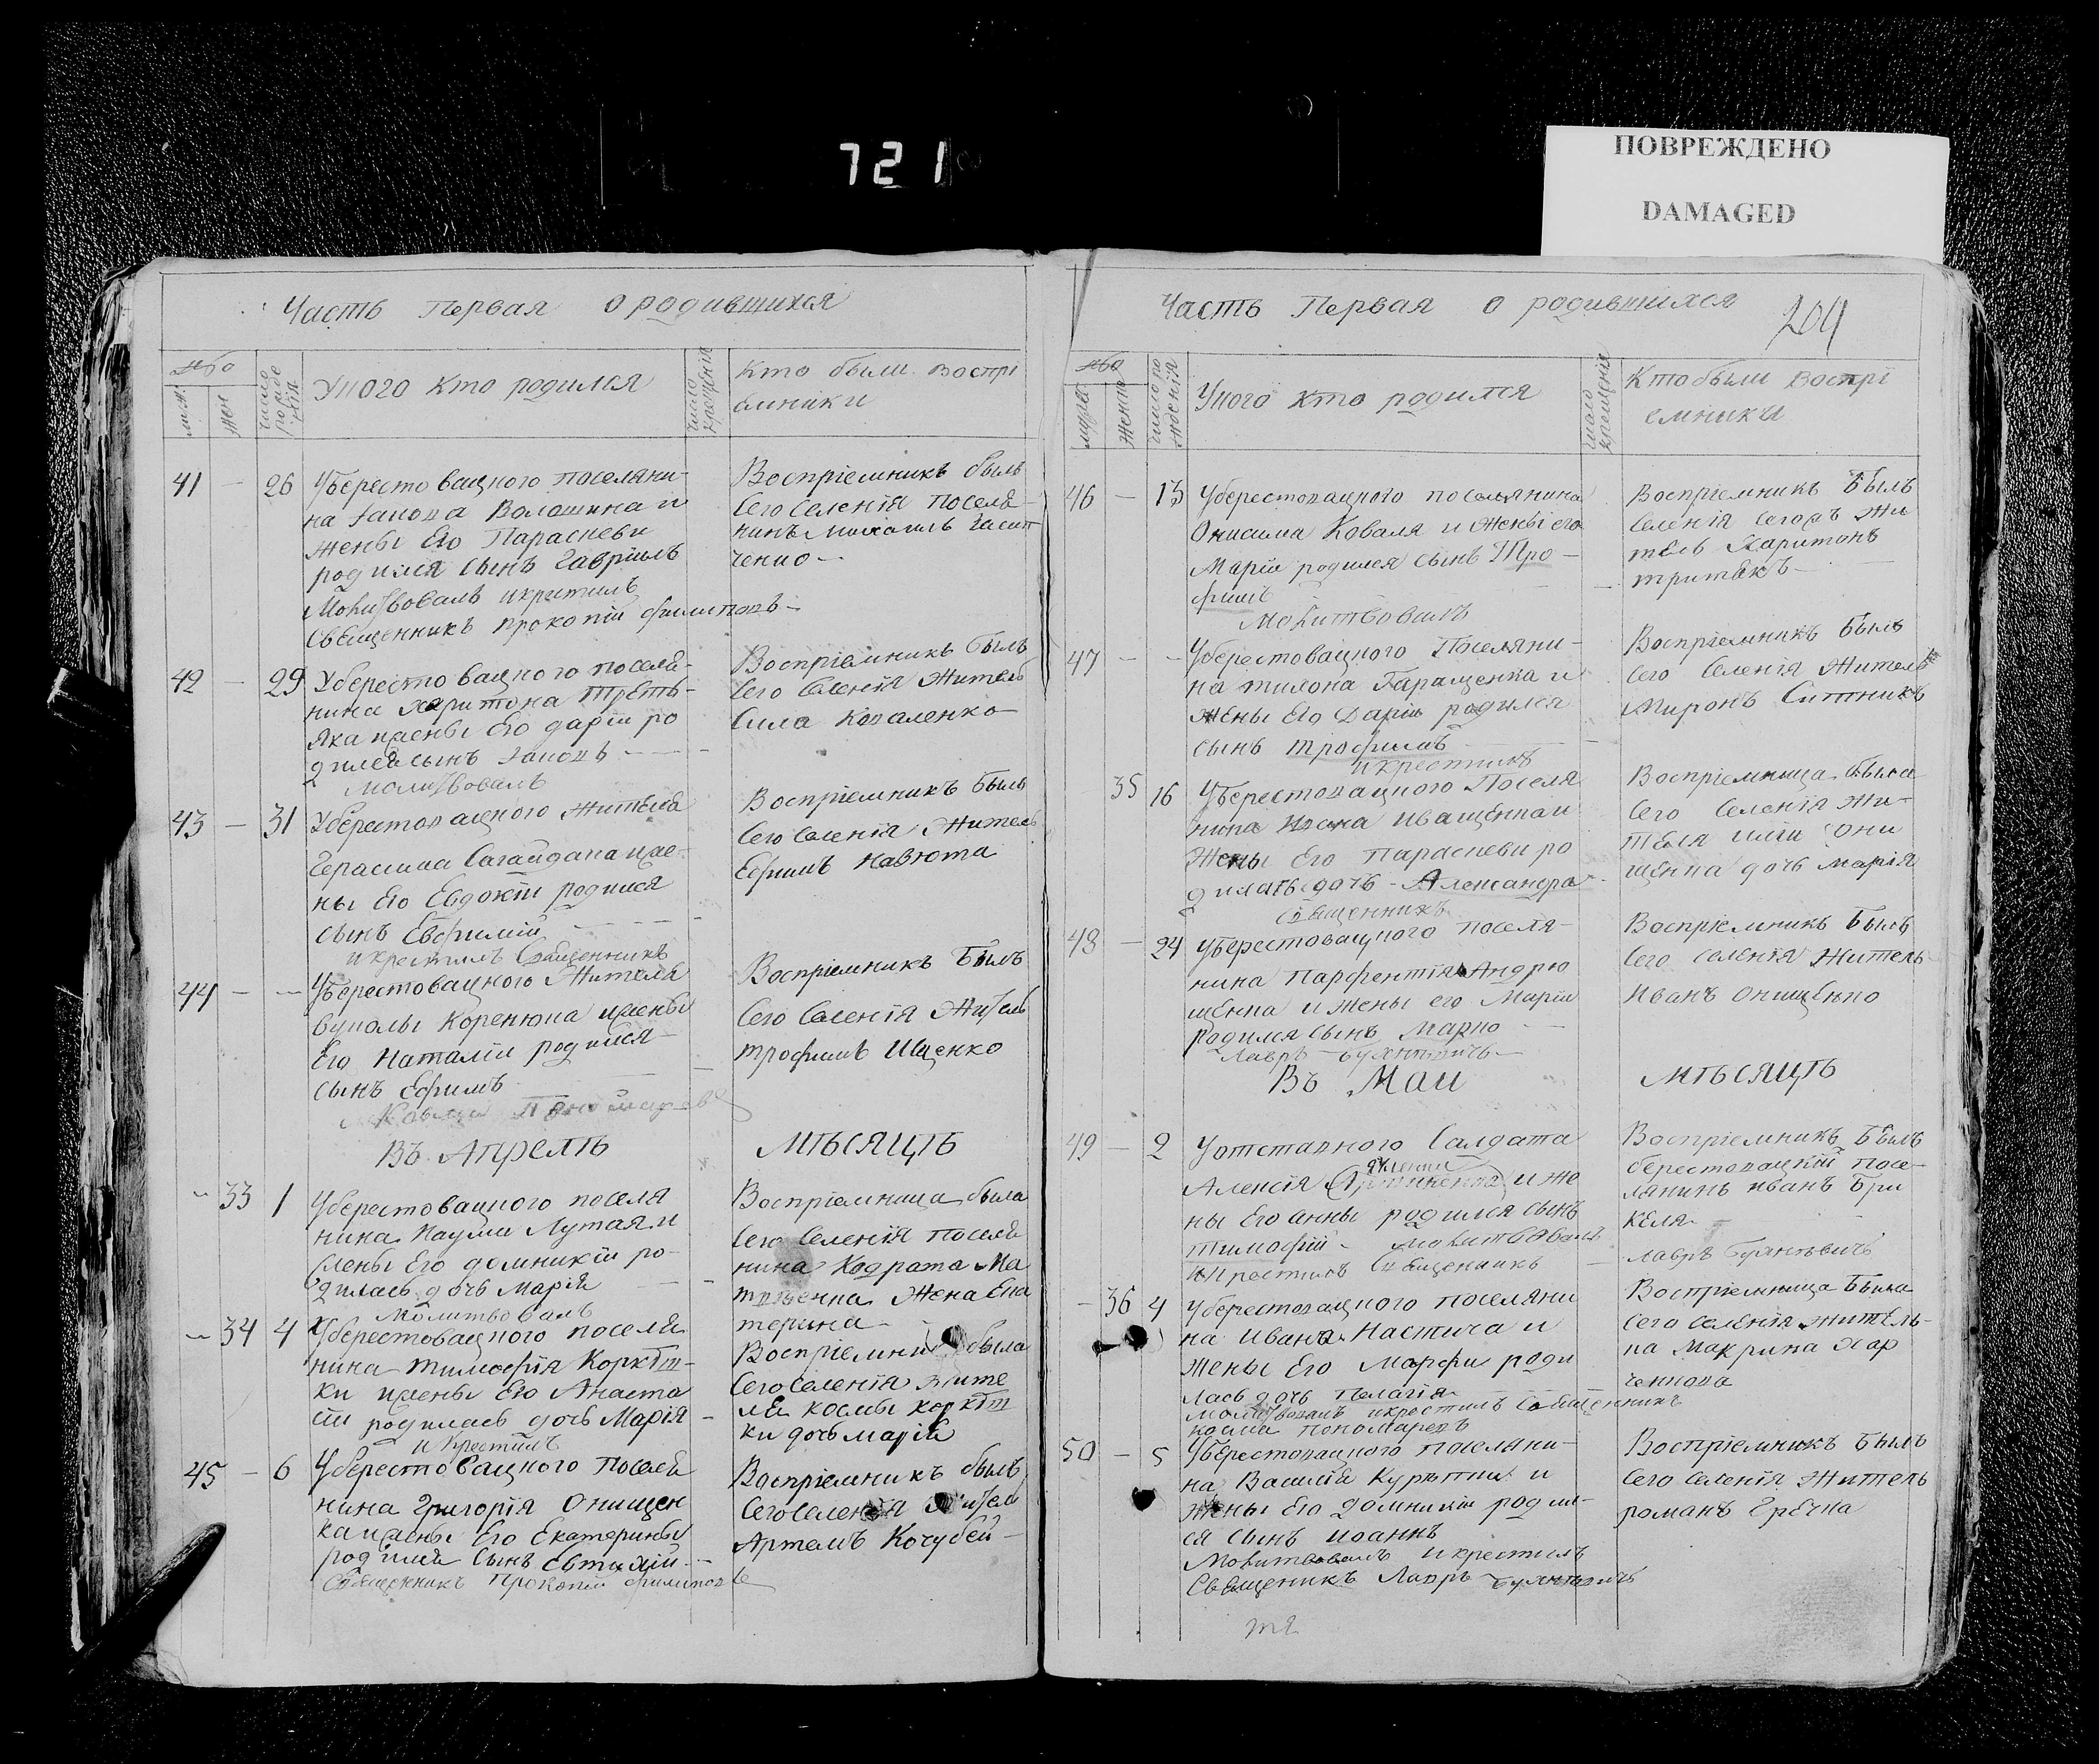 721
ПОВРЕЖДЕНО
DAMAGED
Часть Первая о родившихся
Укого кто родился
Кто были воспрі
емники
41 — 26 Уберестоващного поселяни-
на Іакова Волошина и
жены Его Парасковеи
родился сынъ Гавріилъ
Молитвовалъ икрестилъ
Священникъ Прокопій Филиповъ
Воспріемникъ былъ
Сего Селенія поселя-
нинъ Михаилъ
42 — 29 Уберестоващного поселя-
нина Харитона Треть-
яка ижены Его Даріи ро
дился сынъ Іаковъ
Молитвовалъ
Воспріемникъ былъ
Сего Селенія Житель
Сила Коваленко
43 — 31 Уберестоващного Жителя
Герасима Сагайдака иже-
ны Его Евдокіи родился
сынъ Евфимій
икрестилъ Священникъ
Воспріемникъ былъ
Сего Селенія Житель
Ефимъ Навюта
44 — — Уберестоващного Жителя
Вуколы Коренюка ижены
Его Наталіи родился
сынъ Ефимъ
Косма Пономаревъ
Воспріемникъ Былъ
Сего Селенія Житель
Трофимъ Ищенко
Въ Апрелѣ Мѣсяцѣ
— 33 1 Уберестоващного поселя
нина Наума Лутая и
жены Его Домникіи ро-
дилась дочь Марія
Молитвовалъ
Воспріемница была
Сего Селенія поселя
нина Кодрата Ма
жена Ека
терина
— 34 4 Уберестоващного поселя
нина Тимофія Коркѣш-
ки ижены Его Анаста
сіи родилась дочь Марія
и Крестилъ
Воспріемни была
Сего Селенія жите
ля Космы Коркѣш
ки дочь Марія
45 — 6 Уберестоващного поселя
нина Григорія Онищен
ка ижены Его Екатерины
родился сынъ Евтихій
Священникъ Прокопій Филиповъ
Воспріемникъ былъ
Сего Селенія Житель
Артемъ Кочубей
Часть Первая о родившихся
204
Укого кто родился
Кто были Воспрі
емники
46 — 13 Уберестоващного поселянина
Онисима Коваля и жены его
Маріи родился сынъ Тро-
фимъ
Молитвовалъ
Воспріемникъ Былъ
Селенія сегожъ Жи
тель Харитонъ
Третякъ
47 — — Уберестоващного Поселяни-
на Тихона Гаращенка и
жены Его Даріи родился
сынъ Трофимъ
икрестилъ
Воспріемникъ Былъ
сего Селенія Житель
Миронъ Ситникъ
35 16 Уберестоващного Поселя
нина Ивана Иващенка и
Жены Его Парасковеи ро
дилась дочь Александра
Священникъ
Воспріемница была
Сего Селенія Жи-
теля Они
щенка дочь Марія
48 — 24 Уберестоващного поселя-
нина Парфентія Андрю
щенка и жены его Маріи
родился сынъ Марко
Лавръ Буянтовичъ
Воспріемникъ Былъ
Сего селенія Житель
Иванъ Онищенко
Въ Маи Мѣсяцѣ
49 — 2 Уотставного Салдата
Алексія и же
ны Его Анны родился сынъ
Тимофій Молитвовалъ
икрестилъ Священникъ
Воспріемникъ Былъ
берестоващкій посе-
лянинъ Иванъ Бри
келя
Лавръ Буянтовичъ
— 36 4 Уберестоващного поселяни
на Ивана Настича и
жены Его Марфы роди
лась дочь Пелагія
Молитвовалъ икрестилъ Священникъ
Косма Пономаревъ
Воспріемница Была
сего селенія житель-
ка Макрина Хар
ченкова
50 — 5 Уберестоващного поселяни-
на Василія и
жены Его Домникіи родил-
ся сынъ Иоаннъ
Молитвовалъ икрестилъ
Священикъ Лавръ Буянтовичъ
Воспріемникъ Былъ
Сего Селенія Житель
романъ Гречка